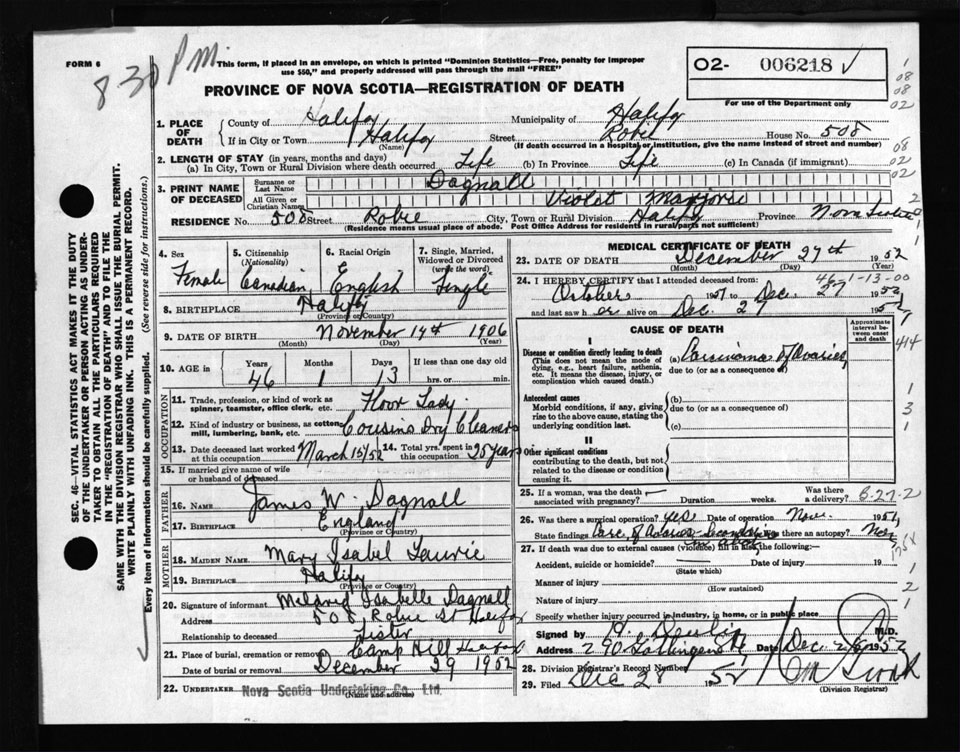 FORM 6
8.30 P.M.
This form, if placed in an envelope, on which is printed "Dominion Statistics—Free, penalty for improper
use $50," and properly addressed will pass through the mail "FREE"
O2- 006218 ✓
For use of the Department only
PROVINCE OF NOVA SCOTIA—REGISTRATION OF DEATH
1. PLACE OF DEATH
County of Halifax Municipality of Halifax
If in City or Town Halifax Street Robie House No. 508
(Name) (If death occurred in a hospital or institution, give the name instead of street and number)
2. LENGTH OF STAY (in years, months and days)
(a) In City, Town or Rural Division where death occurred Life (b) In Province Life (c) In Canada (if immigrant)
3. PRINT NAME OF DECEASED
Surname or Last Name Dagnall
All Given or Christian Names Violet Marjorie
RESIDENCE No. 508 Street Robie City, Town or Rural Division Halifax Province Nova Scotia
(Residence means usual place of abode. Post Office Address for residents in rural parts not sufficient)
4. Sex Female
5. Citizenship (Nationality) Canadian
6. Racial Origin English
7. Single, Married, Widowed or Divorced (write the word) Single
8. BIRTHPLACE Halifax
(Province or Country)
9. DATE OF BIRTH November 14th 1906
(Month) (Day) (Year)
10. AGE in Years Months Days If less than one day old
46 1 13 hrs. or min.
OCCUPATION
11. Trade, profession, or kind of work as spinner, teamster, office clerk, etc. Floor Lady
12. Kind of industry or business, as cotton mill, lumbering, bank, etc. Cousins Dry Cleaners
13. Date deceased last worked at this occupation March 15/52
14. Total yrs. spent in this occupation 25 years
15. If married give name of wife or husband of deceased
FATHER
16. NAME James W. Dagnall
17. BIRTHPLACE England
(Province or Country)
MOTHER
18. MAIDEN NAME Mary Isabel Laurie
19. BIRTHPLACE Halifax
(Province or Country)
20. Signature of informant Mildred Isabelle Dagnall
Address 508 Robie St Halifax
Relationship to deceased Sister
21. Place of burial, cremation or removal Camp Hill Halifax
Date of burial or removal December 29 1952
22. UNDERTAKER Nova Scotia Undertaking Co. Ltd.
(Name and address)
MEDICAL CERTIFICATE OF DEATH
23. DATE OF DEATH December 27th 1952
(Month) (Day) (Year)
46-1-13-00
24. I HEREBY CERTIFY that I attended deceased from:
October 1951 to Dec. 27 1952
and last saw her alive on Dec. 27 1952
CAUSE OF DEATH
Approximate interval between onset and death
I
Disease or condition directly leading to death (a) Carcinoma of Ovaries
(This does not mean the mode of dying, e.g., heart failure, asthenia, etc. It means the disease, injury, or complication which caused death.)
due to (or as a consequence of)
Antecedent causes (b)
Morbid conditions, if any, giving rise to the above cause, stating the underlying condition last.
due to (or as a consequence of)
(c)
II
Other significant conditions
contributing to the death, but not related to the disease or condition causing it.
25. If a woman, was the death associated with pregnancy? Duration weeks. Was there a delivery?
6-27-2
26. Was there surgical operation? yes Date of operation Nov. 1951
State findings Carc. of Ovaries Was there an autopsy? No
27. If death was due to external causes (violence) fill in also the following:—
Accident, suicide or homicide? Date of injury 19
(State which)
Manner of injury
(How sustained)
Nature of injury
Specify whether injury occurred in industry, in home, or in public place
Signed by M.D.
Address 290 Gottingen St Date Dec. 28 1952
28. Division Registrar's Record Number
29. Filed Dec 28 1952
(Division Registrar)
SEC. 46—VITAL STATISTICS ACT MAKES IT THE DUTY
OF THE UNDERTAKER OR PERSON ACTING AS UNDER-
TAKER TO OBTAIN ALL THE PARTICULARS REQUIRED
IN THE "REGISTRATION OF DEATH" AND TO FILE THE
SAME WITH THE DIVISION REGISTRAR WHO SHALL ISSUE THE BURIAL PERMIT.
WRITE PLAINLY WITH UNFADING INK. THIS IS A PERMANENT RECORD.
Every item of Information should be carefully supplied. (See reverse side for instructions.)